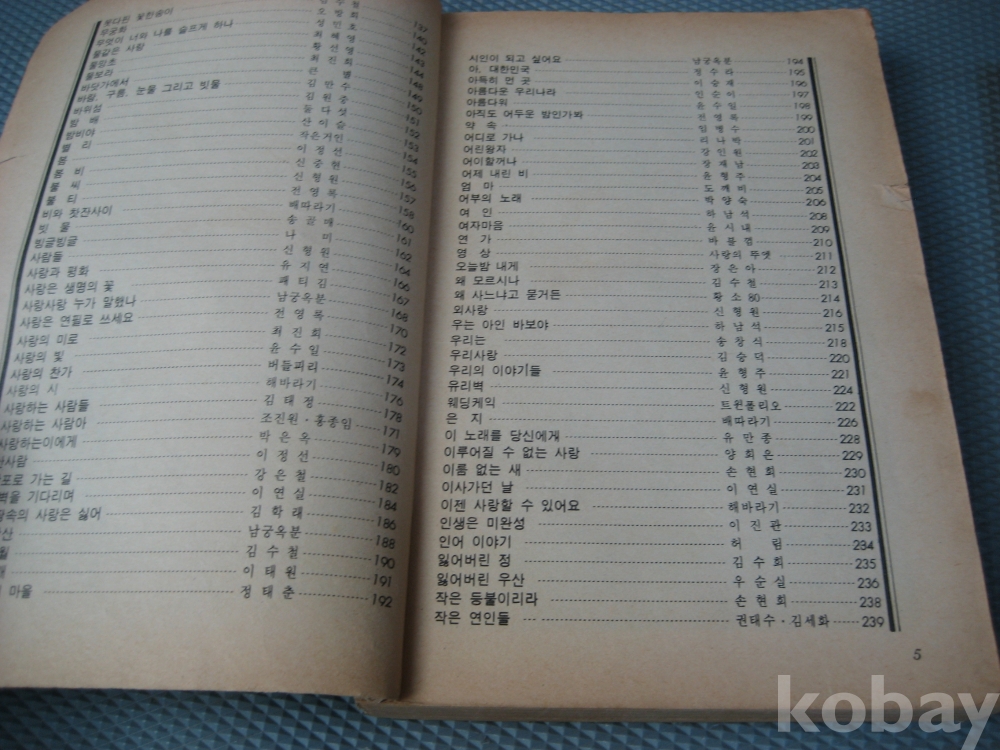 못다핀 꽃한송이
무궁화 137
무엇이 너와 나를 슬프게 하나 140
물같은 사랑 142
물망초 143
물보라 144
바닷가에서 148
바람, 구름, 눈물 그리고 빗물 149
바위섬 김원중 150
밤배 둘다섯 151
밤비야 산이슬 152
벨리 작은거인 153
봄 이정선 154
봄비 신중현 155
불씨 신형원 156
불티 전영록 157
비와 찻잔사이 배따라기 158
빗물 송골매 160
빙글빙글 나미 161
사람들 신형원 162
사랑과 평화 유지연 164
사랑은 생명의 꽃 패티김 166
사랑사랑 누가 말했나 남궁옥분 167
사랑은 연필로 쓰세요 전영록 168
사랑의 미로 최진희 170
사랑의 빛 윤수일 172
사랑의 찬가 버들피리 173
사랑의 시 해바라기 174
사랑하는 사람들 김태정 176
사랑하는 사람아 조진원·홍종임 178
사랑하는이에게 박은옥 171
이정선 179
포로 가는 길 강은철 180
벽을 기다리며 이연실 182
속의 사랑은 싫어 김학래 184
산 남궁옥분 186
월 김수철 188
이태원 190
마을 정태춘 191
192
시인이 되고 싶어요 남궁옥분 194
아, 대한민국 정수라 195
아득히 먼 곳 이승재 196
아름다운 우리나라 197
아름다워 윤수일 198
아직도 어두운 밤인가봐 전영록 199
약속 임병수 200
어디로 가나 리나박 201
어린왕자 강인원 202
어이할꺼나 장재남 203
어제 내린 비 윤형주 204
엄마 도깨비 205
어부의 노래 박양숙 206
여인 하남석 208
여자마음 윤시내 209
연가 바블껌 210
영상 사랑의 듀엣 211
오늘밤 내게 장은아 212
왜 모르시나 김수철 213
왜 사느냐고 묻거든 황소80 214
외사랑 신형원 216
우는 아인 바보야 하남석 215
우리는 송창식 218
우리사랑 김승덕 220
우리의 이야기들 윤형주 221
유리벽 신형원 224
웨딩케익 트윈폴리오 222
은지 배따라기 226
이 노래를 당신에게 유만종 228
이루어질 수 없는 사랑 양희은 229
이름 없는 새 손현희 230
이사가던 날 이연실 231
이젠 사랑할 수 있어요 해바라기 232
인생은 미완성 이진관 233
인어 이야기 허림 234
잃어버린 정 김수희 235
잃어버린 우산 우순실 236
작은 등불이리라 손현희 238
작은 연인들 권태수·김세화 239
5
kobay